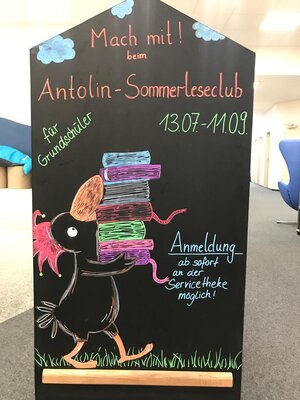 Mach mit!
beim
Antolin-Sommerleseclub
für
Grundschüler
13.07-11.09.
Anmeldung
ab sofort
an der
Servicetheke
möglich!